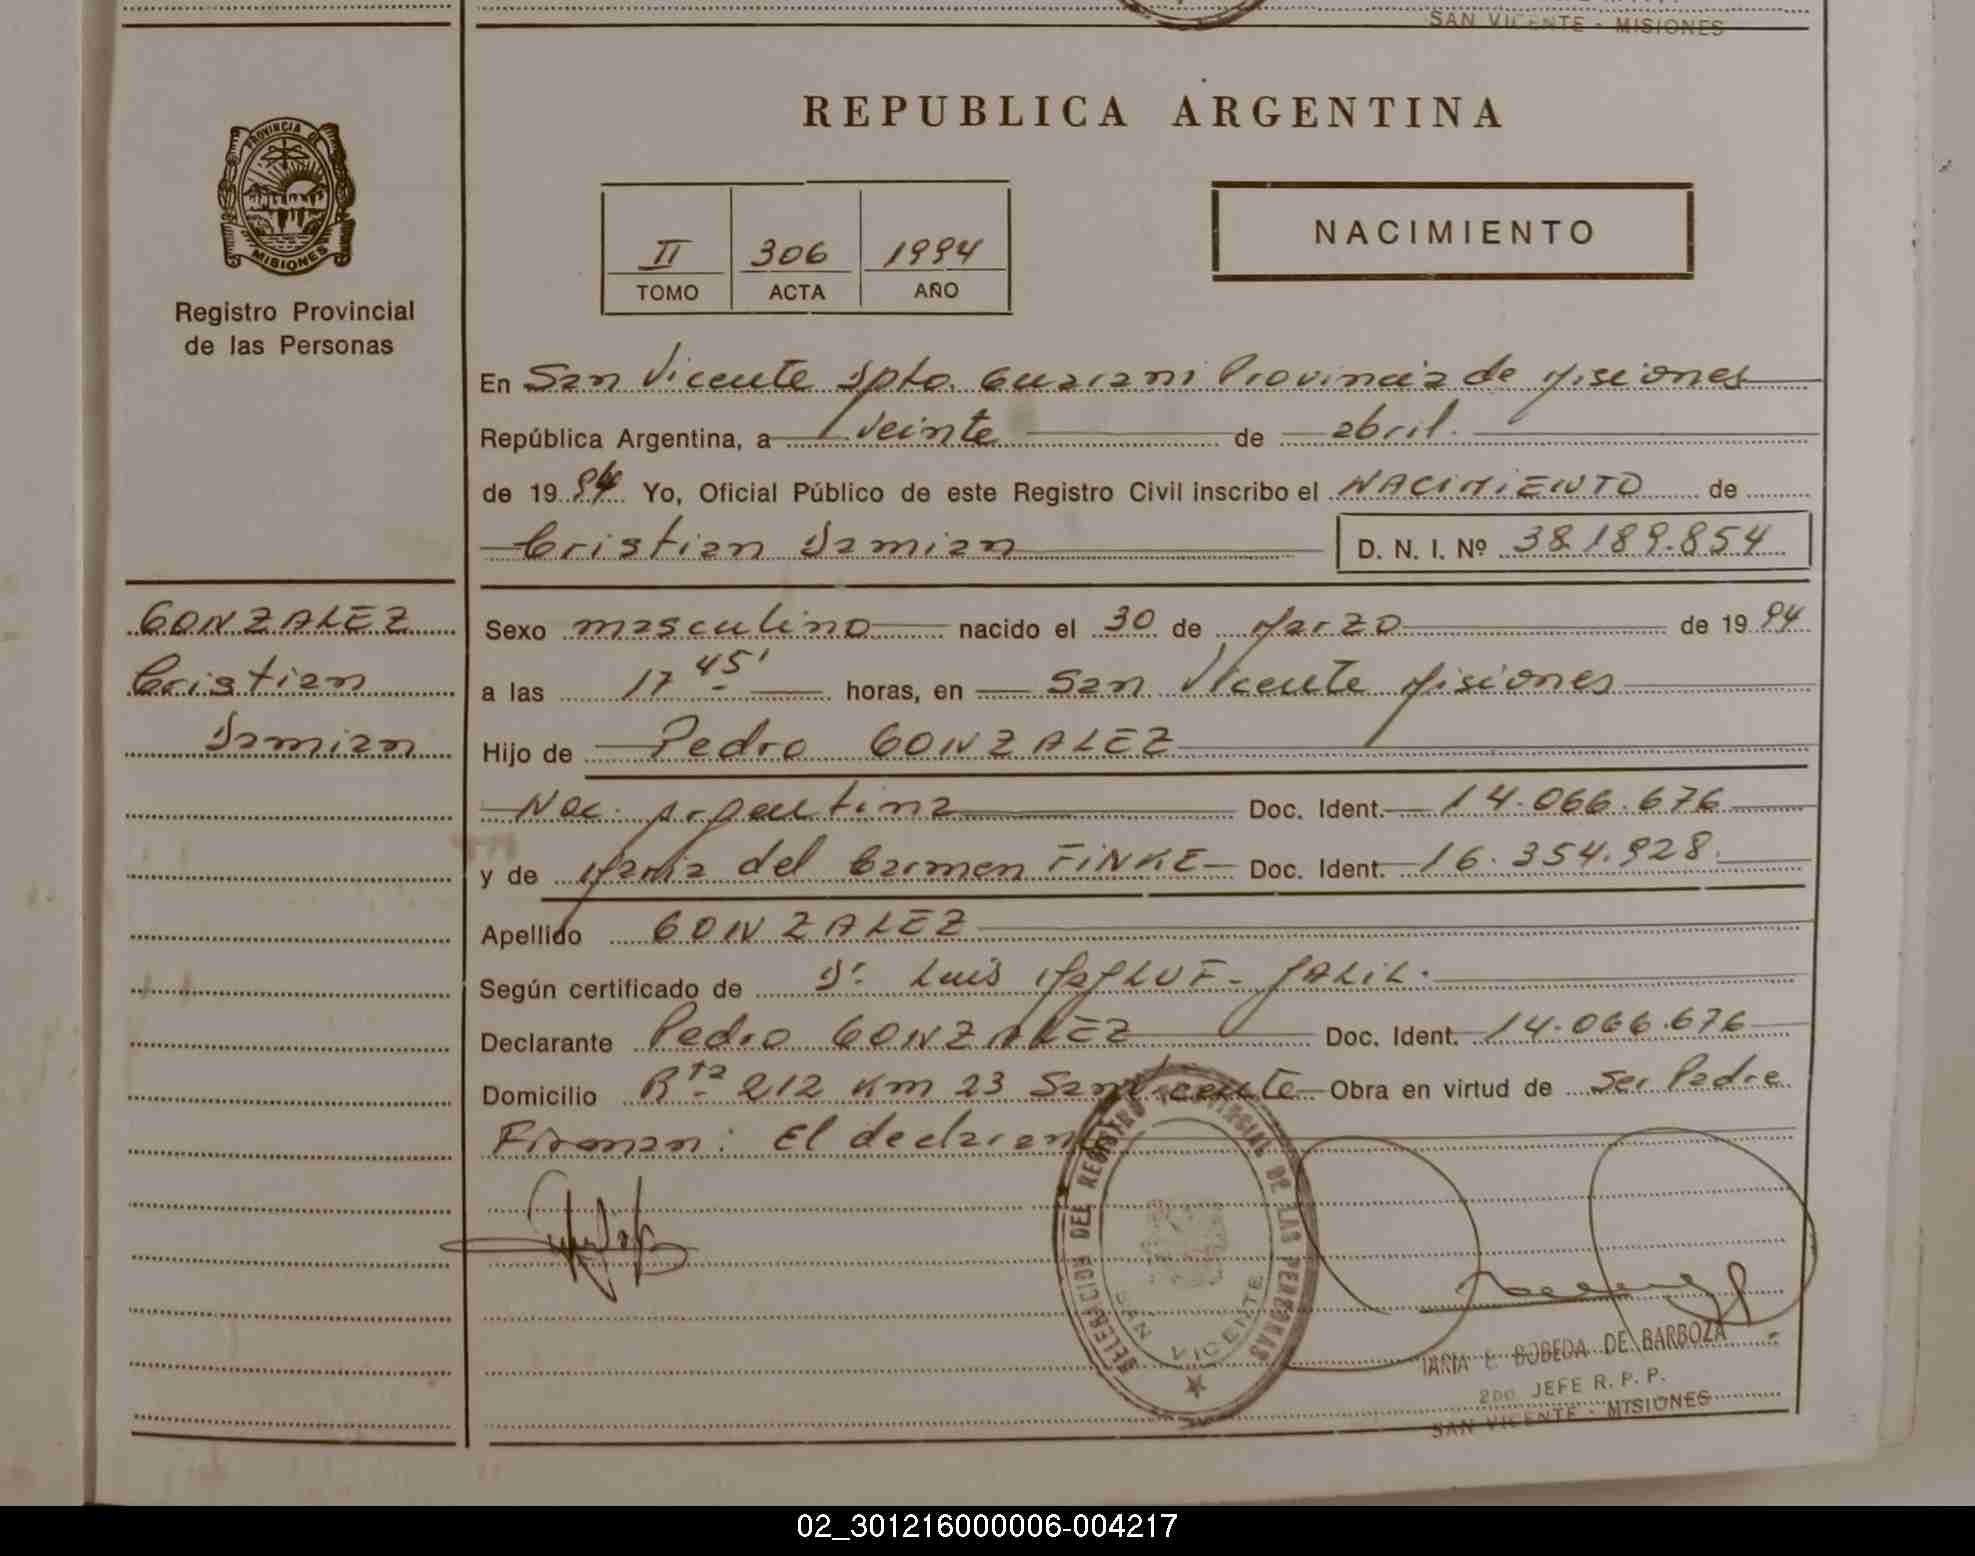 SAN VICENTE - MISIONES
REPUBLICA ARGENTINA
PROVINCIA D
MISIONES
Registro Provincial
de las Personas
II 306 1994
TOMO ACTA AÑO
NACIMIENTO
En San Vicente Dpto. Guarani Provincia de Misiones
República Argentina, a veinte de abril.
de 1994 Yo, Oficial Público de este Registro Civil inscribo el NACIMIENTO de
Cristian Damian D. N. I. Nº 38.189.854
GONZALEZ
Cristian
Damian
Sexo masculino nacido el 30 de Marzo de 1994
a las 17 45' horas, en San Vicente Misiones
Hijo de Pedro GONZALEZ
Nac. Argentina Doc. Ident. 14.066.676
y de Maria del Carmen FINKE Doc. Ident. 16.354.928.
Apellido GONZALEZ
Según certificado de Dr. Luis MaJLUF - JALIL.
Declarante Pedro GONZALEZ Doc. Ident. 14.066.676
Domicilio Rta 212 Km 23 San Vicente Obra en virtud de Ser Padre
Firman: El declarante
DELEGACION DEL REGISTRO PROVINCIAL DE LAS PERSONAS
SAN VICENTE
MARIA E BOBEDA DE BARBOZA
2DO JEFE R. P. P.
SAN VICENTE - MISIONES
02_301216000006-004217